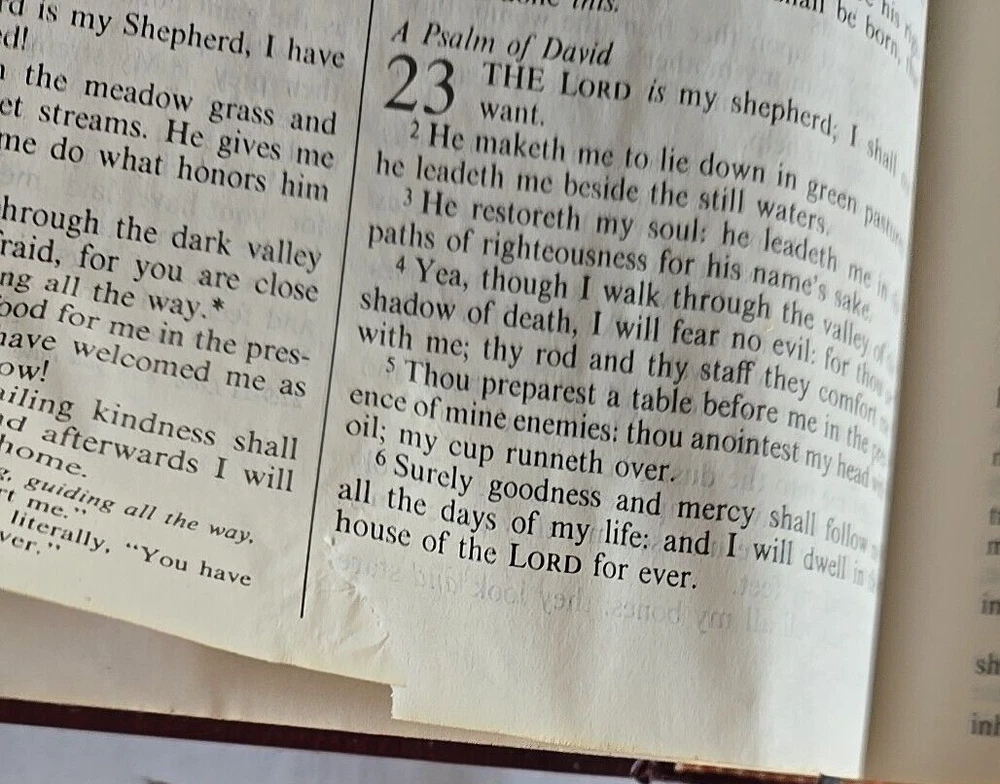 is my Shepherd, I have
the meadow grass and
streams. He gives me
me do what honors him
through the dark valley
for you are close
all the way.*
for me in the pres-
have welcomed me as
kindness shall
afterwards I will
home.
guiding all the way.
me."
literally, "You have
this.
be born,
his
A Psalm of David
23 THE LORD is my shepherd; I shall
want.
2 He maketh me to lie down in green
he leadeth me beside the still waters.
3 He restoreth my soul: he leadeth me in
paths of righteousness for his name's sake.
4 Yea, though I walk through the valley of
shadow of death, I will fear no evil: for
with me; thy rod and thy staff they comfort
5 Thou preparest a table before me in the
ence of mine enemies: thou anointest my head
oil; my cup runneth over.
6 Surely goodness and mercy shall follow
all the days of my life: and I will dwell in
house of the LORD for ever.